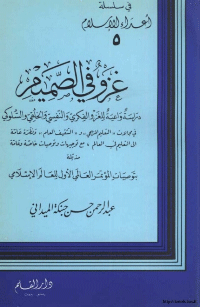 في سلسلة
أعداء الإسلام
٥
غزو في الصميم
دراسة واعية للغزو الفكري والنفسي والخلقي والسلوكي
في مجالات التعليم المنهجي و التثقيف العام ونظرة عامة
إلى التعليم في العالم، مع توجيهات وتوصيات خاصة وعامة
مذيلة
بتوصيات المؤتمر العالمي الأول للتعليم الإسلامي
عبد الرحمن حسن حبنكة الميداني
دار القلم